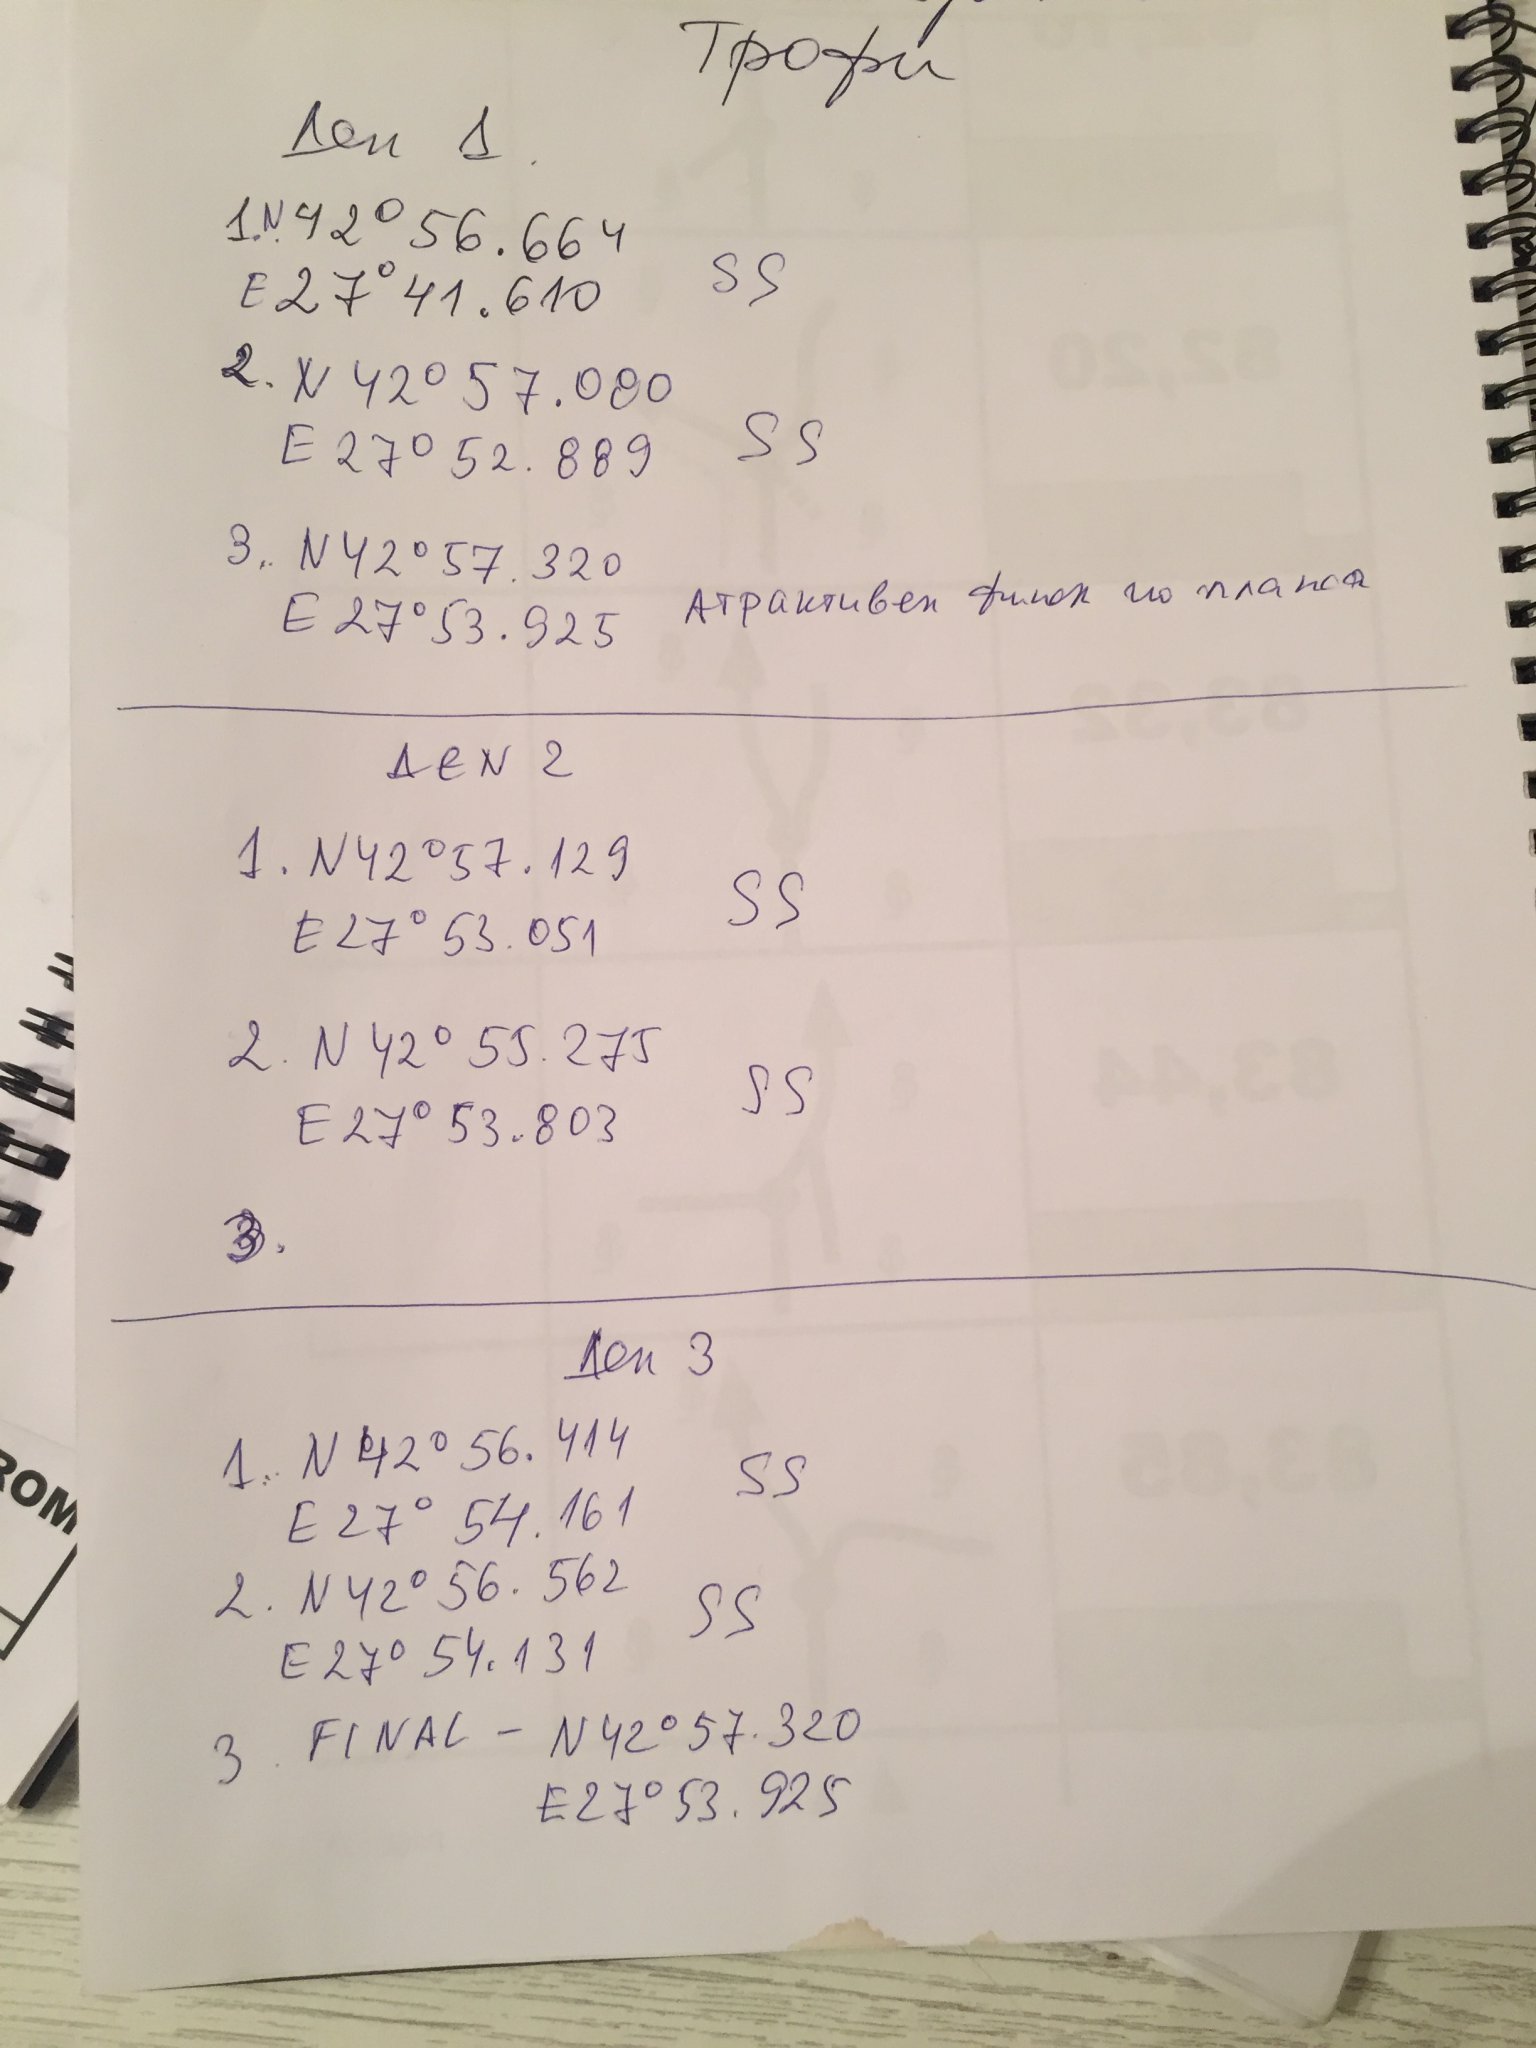 Трофи
Ден 1.
1. N 42° 56.664
E 27° 41.610 SS
2. N 42° 57.080
E 27° 52.889 SS
3. N 42° 57.320
E 27° 53.925 Атрактивен финал по плажа
ДЕN 2
1. N 42° 57.129
E 27° 53.051 SS
2. N 42° 55.275
E 27° 53.803 SS
3.
Ден 3
1. N 42° 56.414
E 27° 54.161 SS
2. N 42° 56.562
E 27° 54.131 SS
3. FINAL – N 42° 57.320
E 27° 53.925
ROM